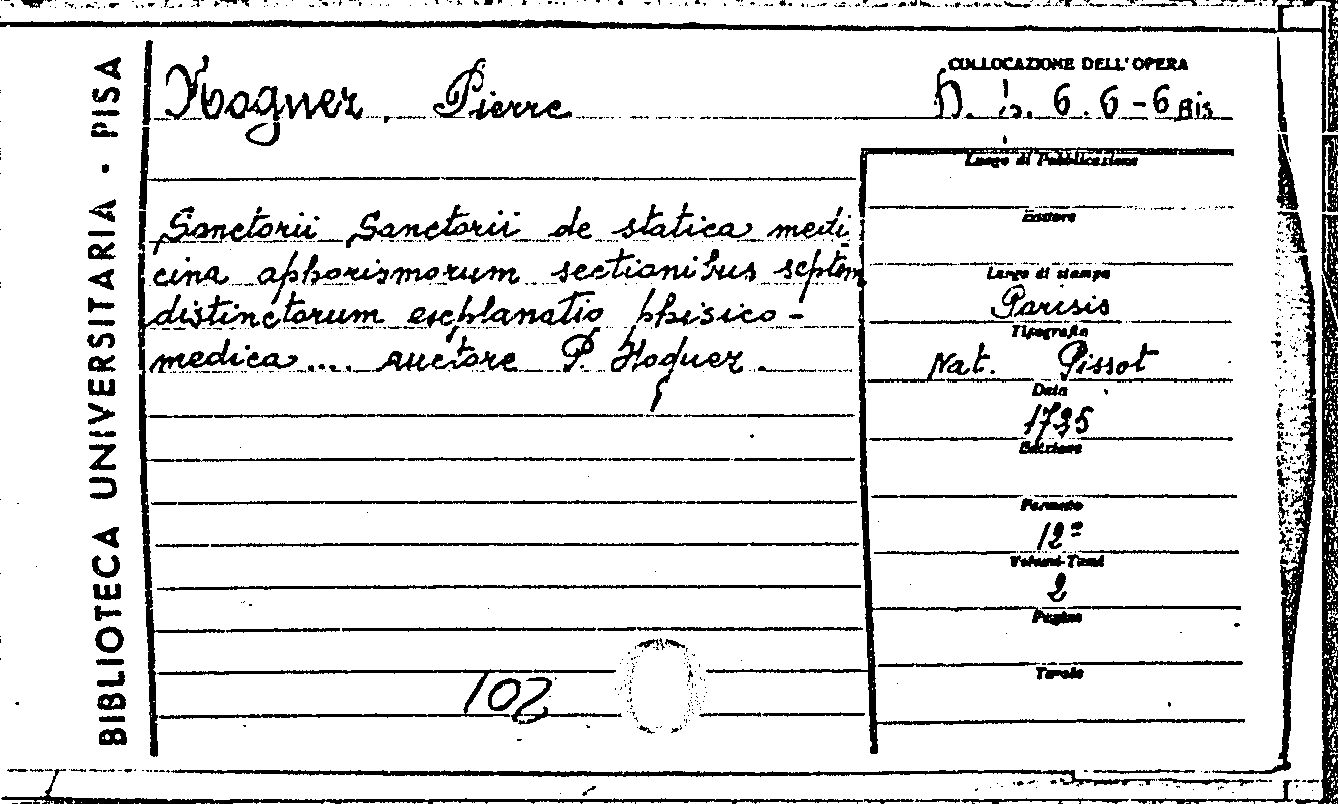 BIBLIOTECA UNIVERSITARIA - PISA
Noguez, Pierre
COLLOCAZIONE DELL'OPERA
6. 6-6 Bis
Luogo di Pubblicazione
Editore
Luogo di stampa
Parisis
Tipografia
Nat. Pissot
Data
1725
Edizione
Formato
12º
Volumi-Tomi
2
Pagine
Tavole
Sanctorii Sanctorii de statica medi
cina aphorismorum sectionibus septem
distinctorum esplanatio phisico-
medica.... auctore P. Noguez.
102